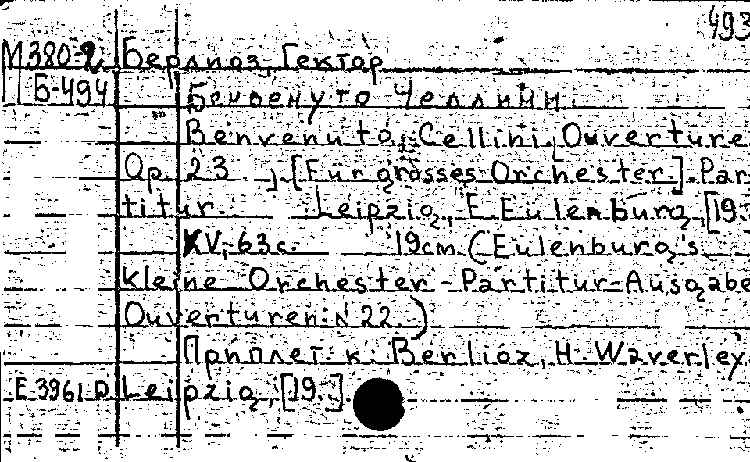 493
М380-2 Берлиоз, Гектор
Б-494 Бенвенуто Челлини.
Benvenuto Cellini, Ouverture
Op. 23, [Für grosses Orchester.] Par-
titur. Leipzig, E. Eulenburg, [19.
XV, 63 с. 19cm. (Eulenburg's
kleine Orchester-Partitur-Ausgabe
Ouverturen: N 22.)
Приплет. к: Berlioz, H. Waverley.
E 3961 D Leipzig, [19. ].